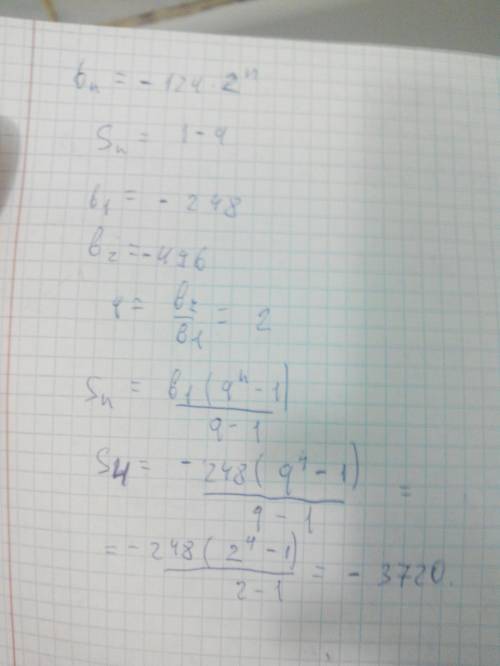 bₙ = - 124 · 2ⁿ
Sₙ = 1 - q
b₁ = - 248
b₂ = - 496
q = b₂/b₁ = 2
Sₙ = b₁(qⁿ - 1)/(q - 1)
S4 = - 248(q⁴ - 1)/(q - 1) =
= - 248(2⁴ - 1)/(2 - 1) = - 3720.